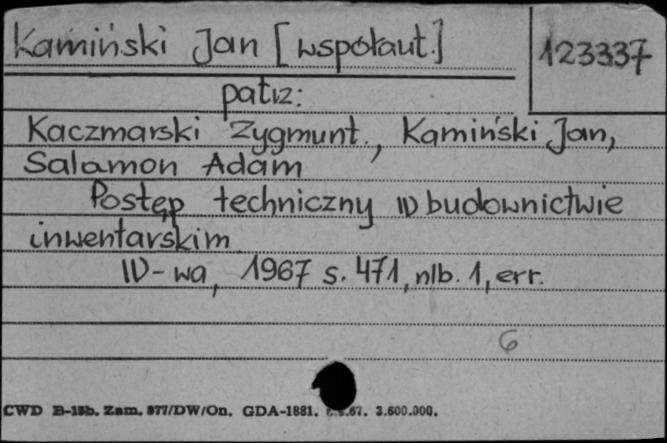 Kamiński Jan [współaut.]
123337
patrz:
Kaczmarski Zygmunt., Kamiński Jan,
Salamon Adam
Postęp techniczny w budownictwie
inwentarskim
W-wa, 1967 s. 471, nlb. 1, err.
6
CWD B-15b. Zam. 877/DW/On. GDA-1881. 67. 3.600.000.